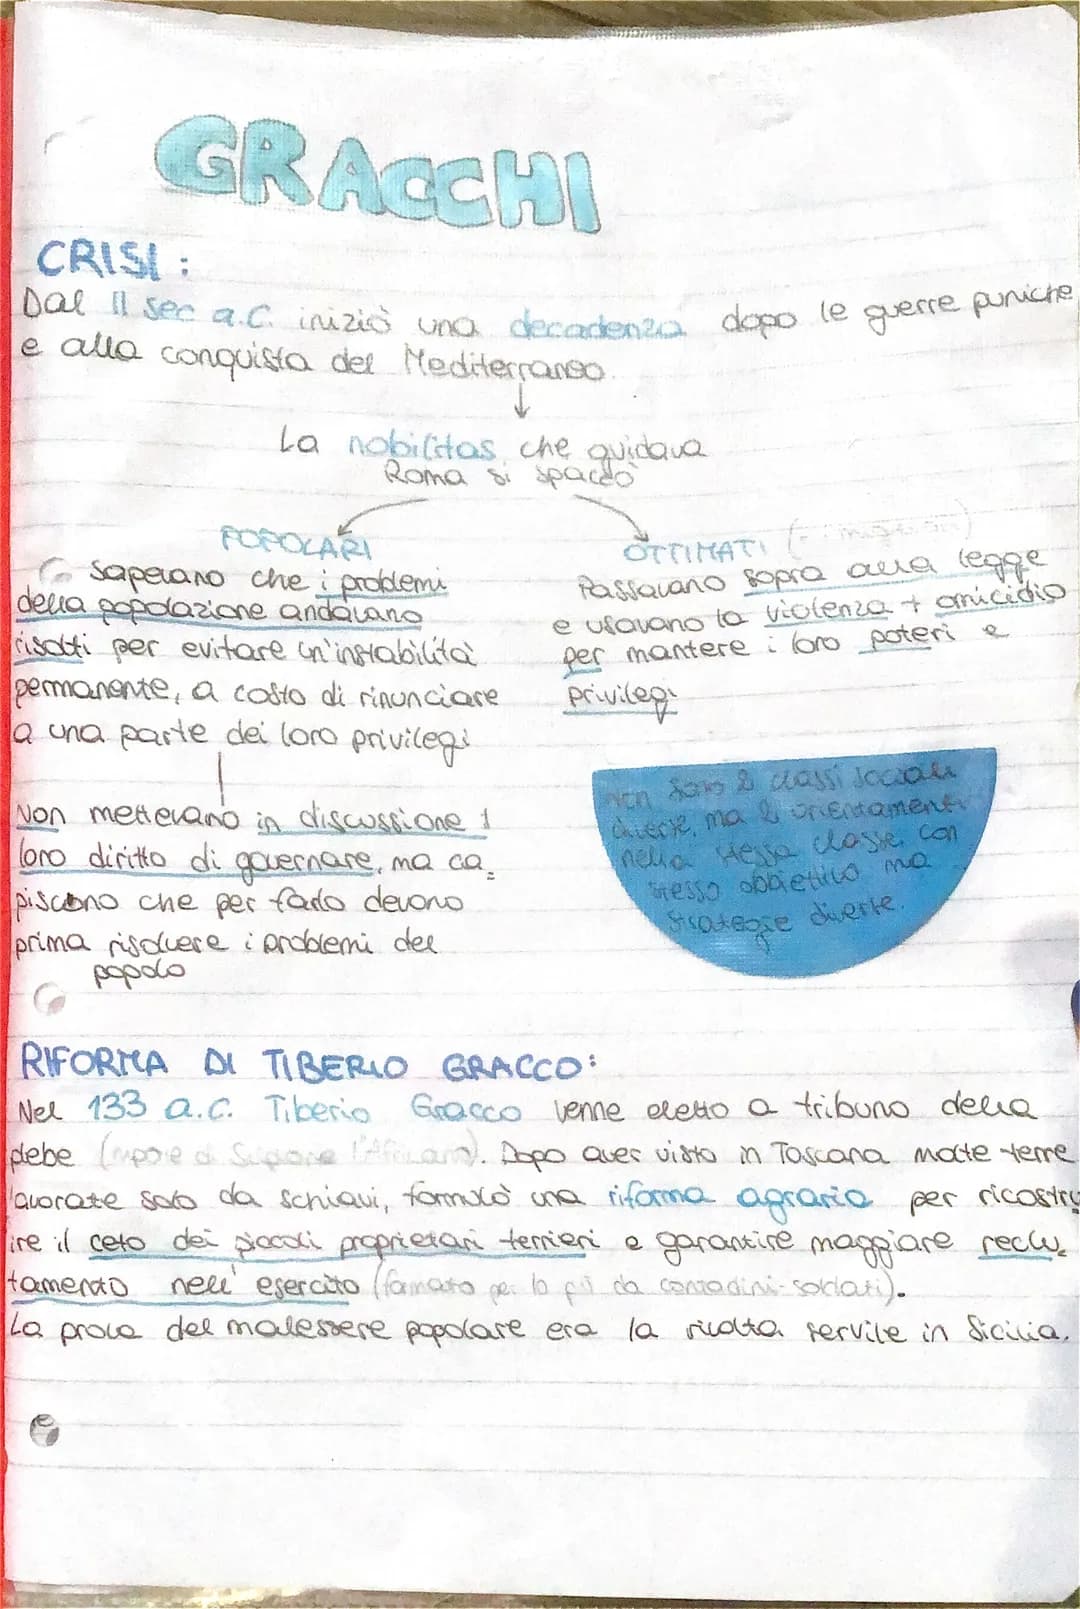 GRACCHI
CRISI:
Dal II sec a.C. iniziò una decadenza dopo le guerre puniche
e alla conquista del Mediterraneo.
↓
La nobilitas che guidava
Roma si spaccò
POPOLARI
sapevano che i problemi
della popolazione andavano
risolti per evitare un'instabilità
permanente, a costo di rinunciare
a una parte dei loro privilegi
Non mettevano in discussione il
loro diritto di governare, ma ca=
piscono che per farlo devono
prima risolvere i problemi del
popolo
OTTIMATI
Passavano sopra alla legge
e usavano la violenza + omicidio
per mantere i loro poteri e
privilegi
Non sono 2 classi sociali
diverse, ma 2 orientamenti
nella stessa classe, con
stesso obbiettivo ma
strategie diverse.
RIFORMA DI TIBERIO GRACCO:
Nel 133 a.C. Tiberio Gracco venne eletto a tribuno della
plebe (nipote di Scipione l'Africano). Dopo aver visto in Toscana molte terre
lavorate solo da schiavi, formulò una riforma agraria per ricostru
ire il ceto dei piccoli proprietari terrieri e garantire maggiore reclu=
tamento nell'esercito (formato per lo più da contadini-soldati).
La prova del malessere popolare era la rivolta servile in Sicilia.